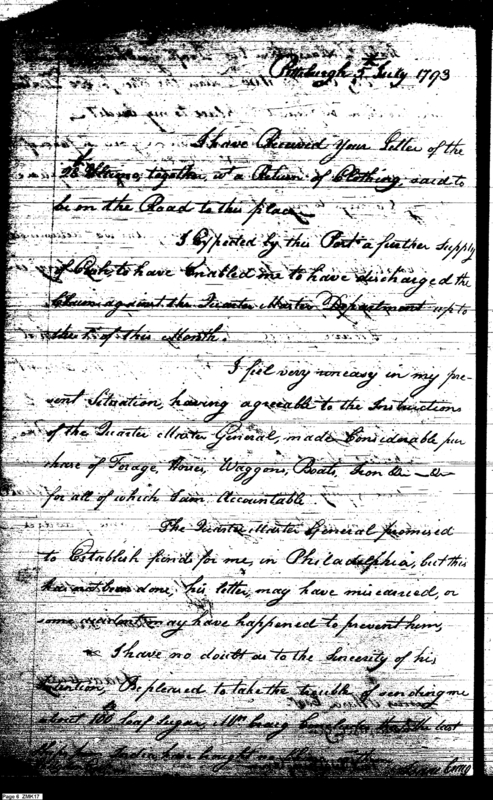 Pittsburgh 5th July 1793
I have Received your Letter of the
28th Ultimo, together wt a Return of Clothing, said to
be on the Road to this place
I Expected by this Post a further Supply
of Cash to have Enabled me to have discharged the
Claims against the Quarter Master Department up to
the 1st of this Month.
I feel very uneasy in my pre-
sent Situation, having agreeable to the Instructions
of the Quarter Master General, made Considerable pur
chase of Forage, Horses, Waggons, Boats, Iron &c &c
for all of which I am Accountable
The Quarter Master General promised
to Establish funds for me, in Philadelphia, but this
has not been done, his letter, may have miscarried, or
some accident may have happened to prevent him,
I have no doubt as to the Sincerity of his
Intention, Be pleased to take the trouble of sending me
about 100 loaf Sugar, Mrs Craig
bought
Craig
Page 6 ZMK17